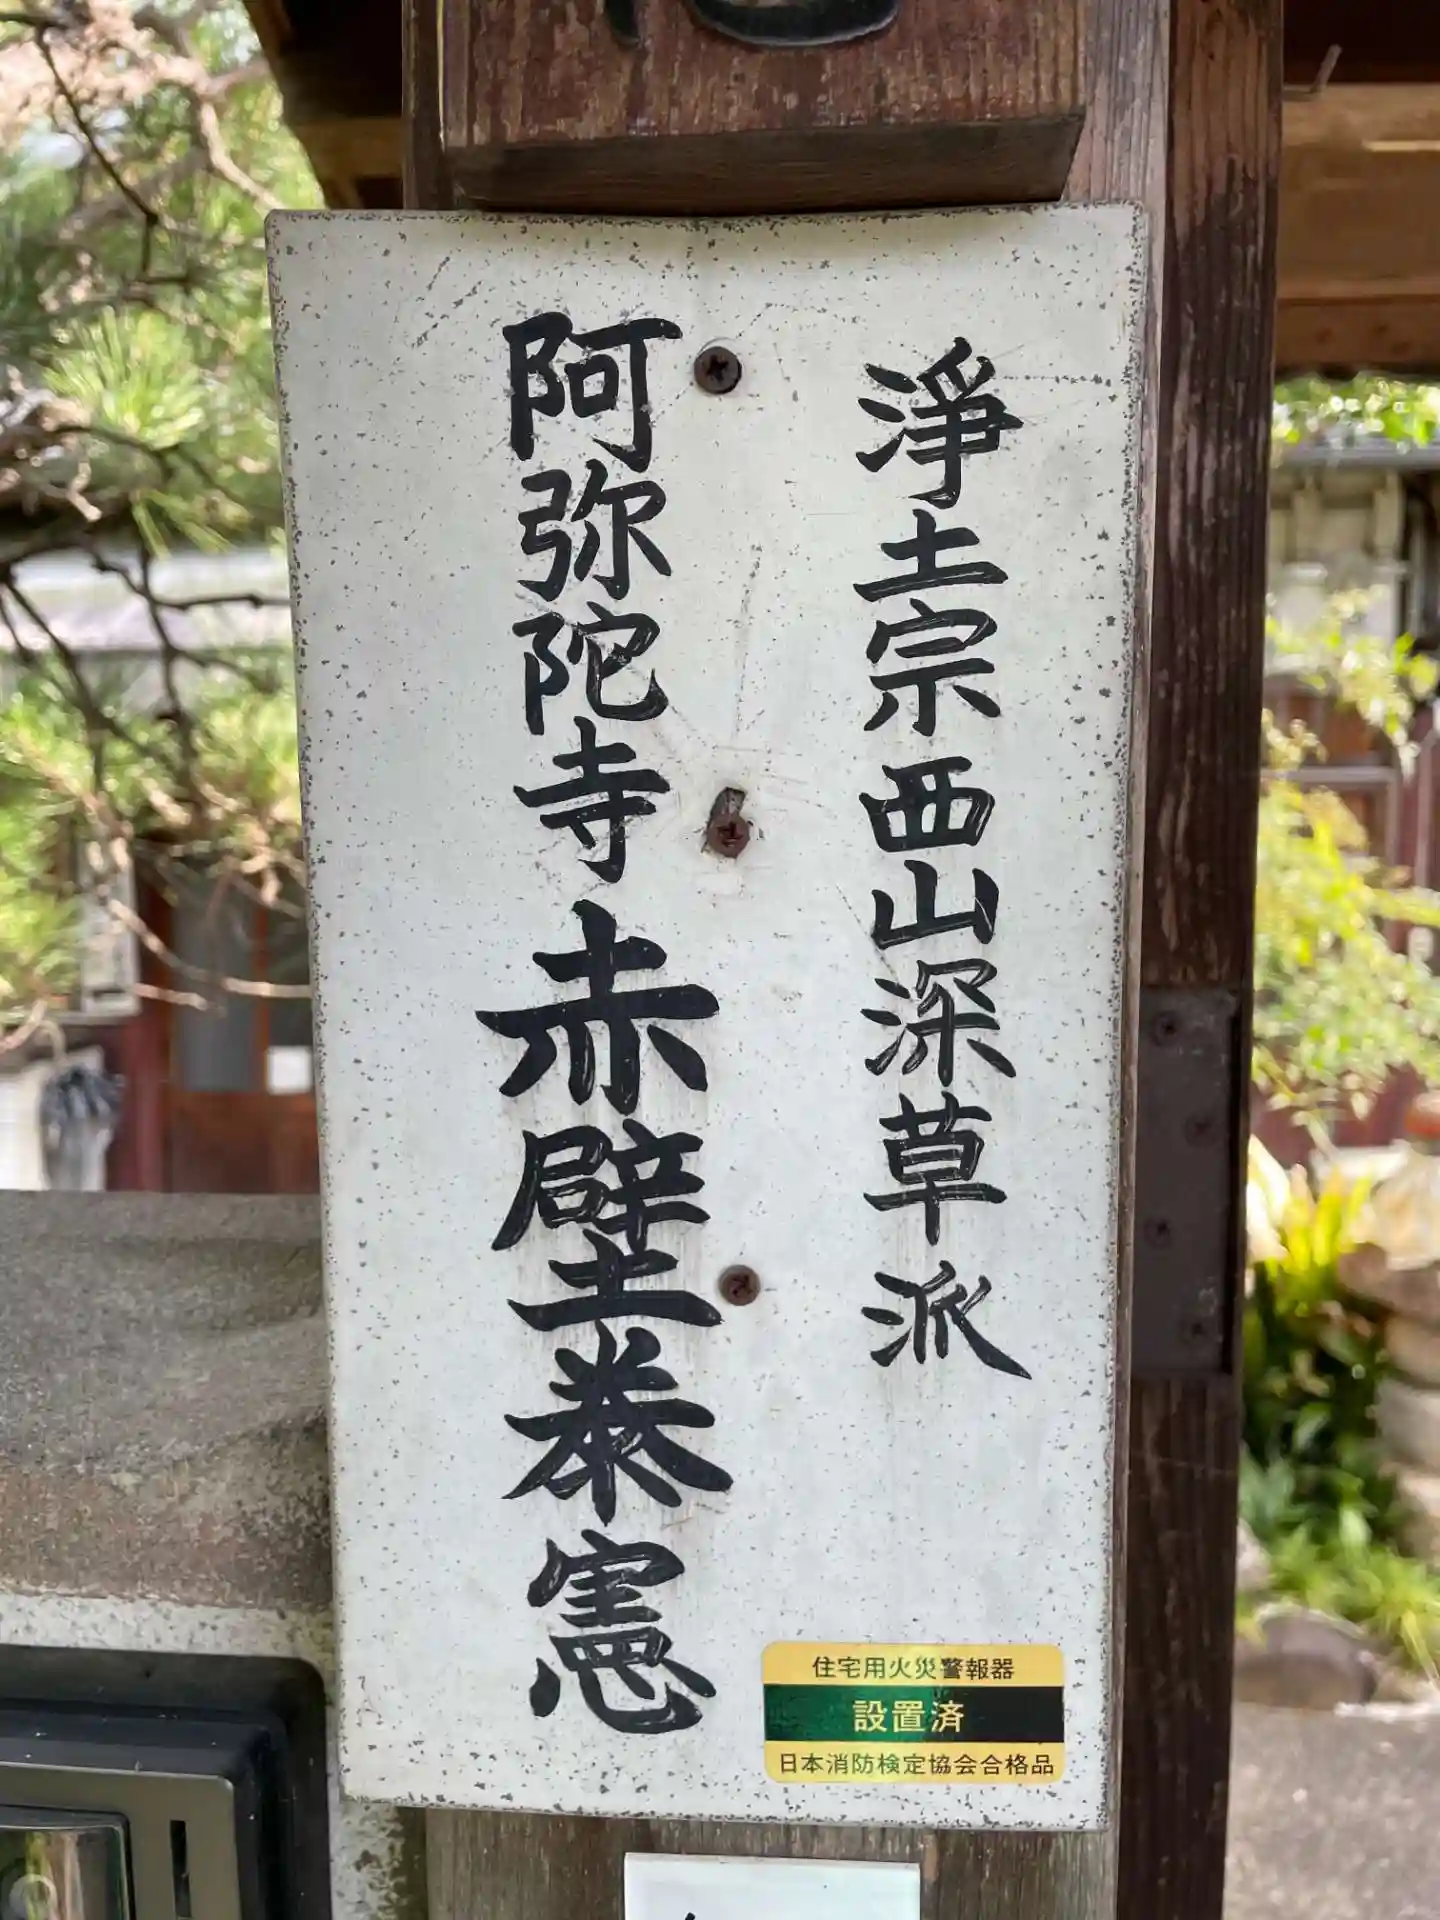 淨土宗西山深草派
阿弥陀寺赤壁泰憲
住宅用火災警報器
設置済
日本消防検定協会合格品